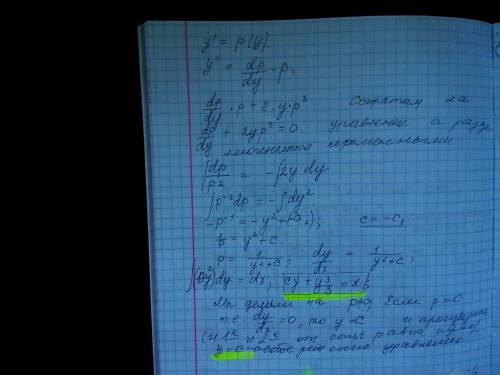 y' = p(y).
y'' = dp/dy · p.
dp/dy · p + 2 · y · p³ Сократим на
dp/dy + 2yp² = 0. уравнение с разде
переменными
∫ dp/p² = -∫ 2y dy
∫ p⁻² dp = -∫ dy²
-p⁻¹ = -y² + c = -c₁
= y² + c.
p = 1/(y²+c) ; dy/dx = 1/(y²+c) ;
dy = dx, cy + y³/3 = x
Мы делим на p≠0, Если p=0
т.е. dy/dx = 0, то y = c и
от const равна
y = c решение уравнения